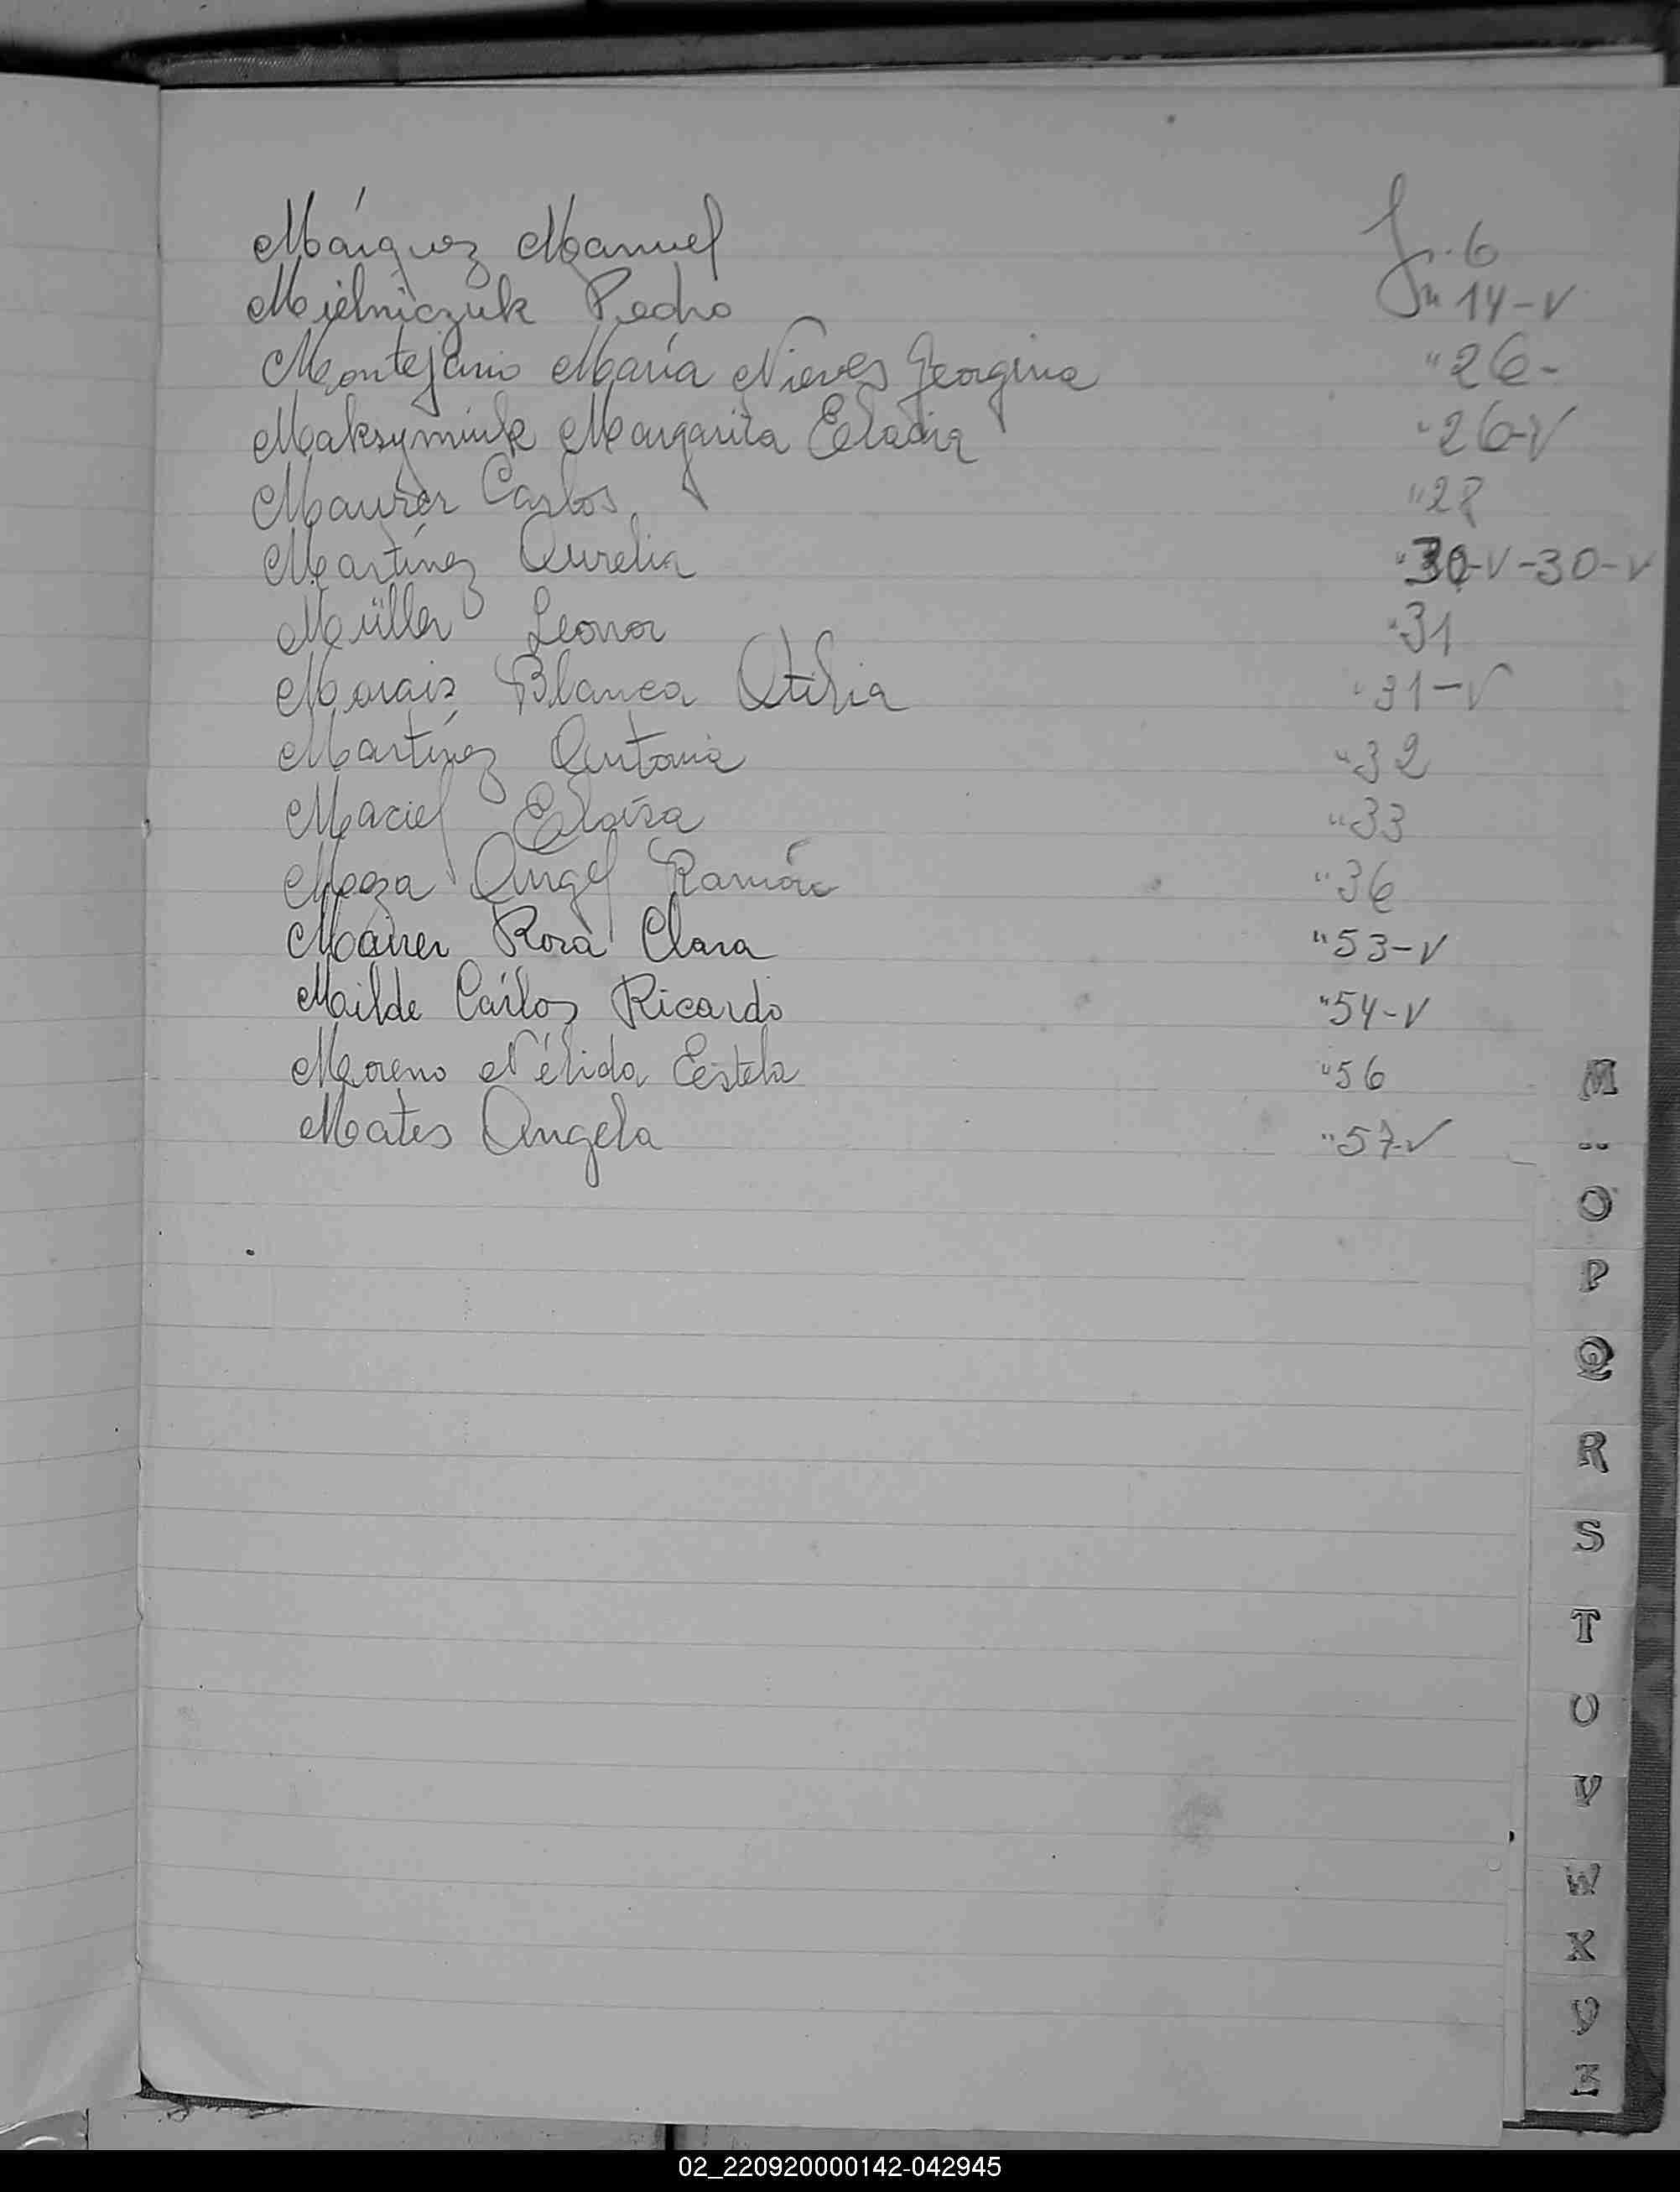 Márquez Manuel f. 6
Mielniczuk Pedro " 14-v
Montejano María Nieves Georgina " 26-
Maksymiuk Margarita Eladia " 26-v
Maurer Carlos " 28
Martínez Aurelia " 30-v-30-v
Müller Leonor " 31
Morais Blanca Otilia " 31-v
Martínez Antonia " 32
Maciel Eloísa " 33
Meza Angel Ramón " 36
Mairer Rosa Clara " 53-v
Milde Carlos Ricardo " 54-v
Moreno Nélida Estela " 56
Mates Angela " 57-v
M
O
P
Q
R
S
T
U
V
W
X
Y
Z
02_220920000142-042945